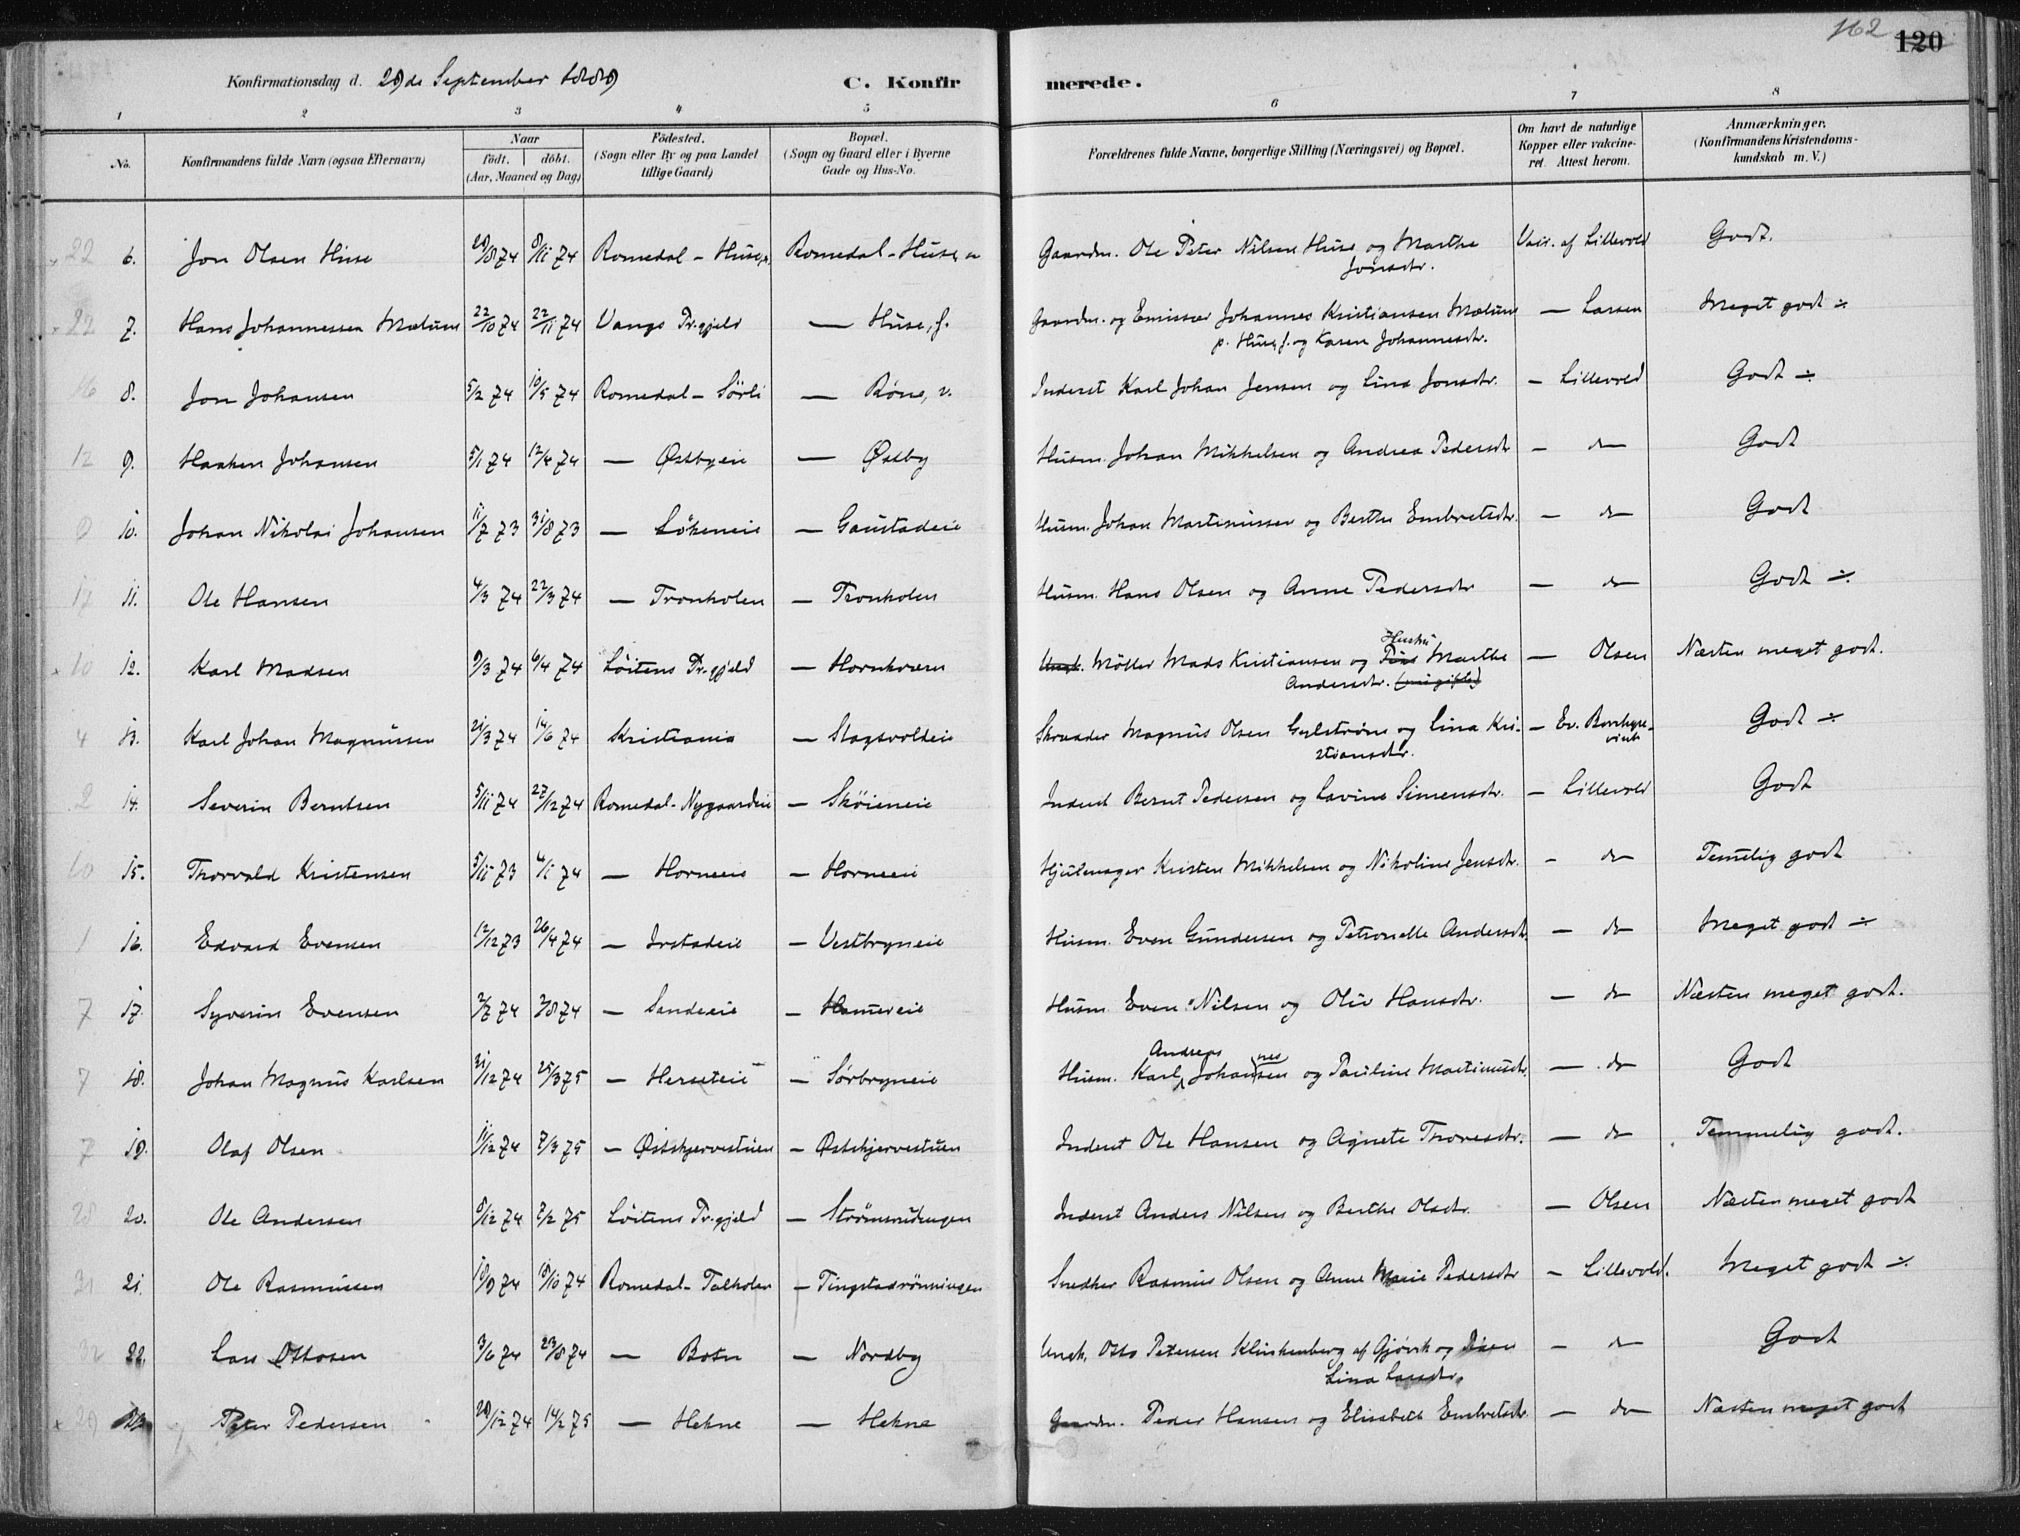 162 120
Konfirmationsdag d. 29de September 1889 C. Konfirmerede.
1 2 3 4 5 6 7 8
No. Konfirmandens fulde Navn (ogsaa Efternavn) Naar födt. döbt. (Aar, Maaned og Dag) Födested. (Sogn eller By og paa Landet tillige Gaard) Bopæl. (Sogn og Gaard eller i Byerne Gade og Hus-No. Forældrenes fulde Navne, borgerlige Stilling (Næringsvei) og Bopæl. Om havt de naturlige Kopper eller vakcineret. Attest herom. Anmærkninger. (Konfirmandens Kristendomskundskab m. V.)
22 6. Jon Olsen Huse 8/11 74 Romedal - Huse, n. Romedal - Huse, n Gaardm. Ole Peter Nilsen Huse og Marthe Jonsdtr. Vacc. af Lillevold Godt.
22 7. Hans Johannessen Mælum 22/10 74 22/11 74 Vangs Pr.gjeld — Huse, f. Gaardm. og Emissær Johannes Kristiansen Mælum p. Huse, f. og Karen Johannesdtr. — Larsen Meget godt ÷
16 8. Jon Johansen 5/2 74 10/5 74 Romedal - Sörli — Röne, v. Inderst Karl Johan Jensen og Lina Jonsdtr. — Lillevold Godt ÷
12 9. Haaken Johansen 5/1 74 12/4 74 — Østbyeie — Østby Husm. Johan Mikkelsen og Andrea Pedersdtr — do Godt
9 10. Johan Nikolai Johansen 11/7 73 31/8 73 — Lökeneie — Gaustadeie Husm. Johan Martinussen og Berthe Embretsdtr. — do Godt
17 11. Ole Hansen 4/3 74 22/3 74 — Tronholen — Tronholen Husm. Hans Olsen og Anne Pedersdtr — do Godt ÷
10 12. Karl Madsen 9/3 74 6/4 74 Löitens Pr.gjeld — Hornkværn Ungk. Möller Mads Kristiansen og Hustru Marthe Andersdtr. — Olsen Næsten meget godt.
4 13. Karl Johan Magnussen 21/3 74 14/6 74 Kristiania — Stagsvoldeie Skrædder Magnus Olsen Gylström og Lina Kristiansdtr. — Godt ÷
2 14. Severin Berntsen 5/11 74 27/12 74 Romedal - Nygaardeie — Sköieneie Inderst Bernt Pedersen og Lavine Simensdtr. — Lillevold Godt
10 15. Thorvald Kristensen 5/11 73 4/1 74 — Horneeie — Horneeie Hjulmager Kristen Mikkelsen og Nikoline Jensdtr. — do Temelig godt
1 16. Edvard Evensen 12/12 73 26/4 74 — Irstadeie — Vestbryneie Husm. Even Gundersen og Petronelle Andersdt. — do Meget godt ÷
7 17. Syverin Evensen 2/7 74 2/8 74 — Sandeeie — Husm. Even Nilsen og Oliv Hansdtr. — do Næsten meget godt.
7 18. Johan Magnus Karlsen 31/12 74 25/3 75 — Herseteie — Sörbryneie Husm. Karl Andreas Johansen nes og Pauline Martinusdtr. — do Godt
7 19. Olaf Olsen 11/12 74 7/3 75 — Østskjervestuen — Østskjervestuen Inderst Ole Hansen og Agnete Thoresdtr. — do Temmelig godt.
28 20. Ole Andersen 8/12 74 7/2 75 Löitens Pr.gjeld — Inderst Anders Nilsen og Berthe Olsdtr. — Olsen Næsten meget godt
31 21. Ole Rasmussen 10/9 74 18/10 74 Romedal - Talholen — Tingstadrönningen Snedker Rasmus Olsen og Anne Marie Pedersdtr — Lillevold. Meget godt ÷
32 22. Lars Ottosen 3/6 74 23/8 74 — Botn — Nordby Ungk. Otto Petersen Klinkenberg af Gjövik og Lina Larsdtr. — do Godt
29 23. Peter Pedersen 29/12 74 14/2 75 — Hekne — Hekne Gaardm. Peder Hansen og Elisabeth Embretsdtr. — do Næsten meget godt